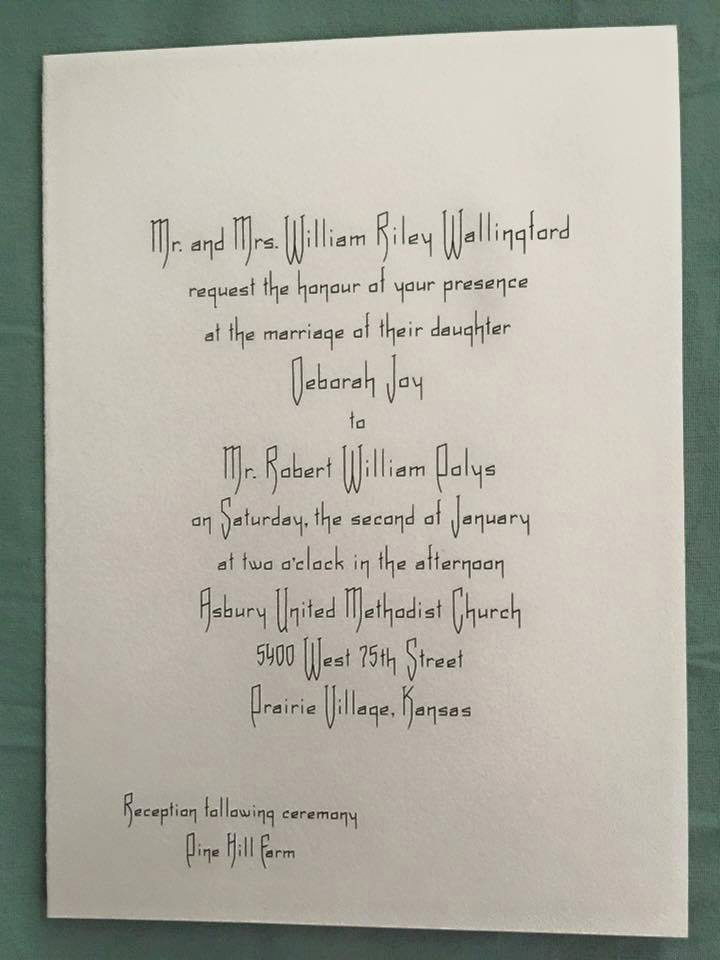 Mr. and Mrs. William Riley Wallingford
request the honour of your presence
at the marriage of their daughter
Deborah Joy
to
Mr. Robert William Polys
on Saturday, the second of January
at two o'clock in the afternoon
Asbury United Methodist Church
5400 West 75th Street
Prairie Village, Kansas
Reception following ceremony
Pine Hill Farm